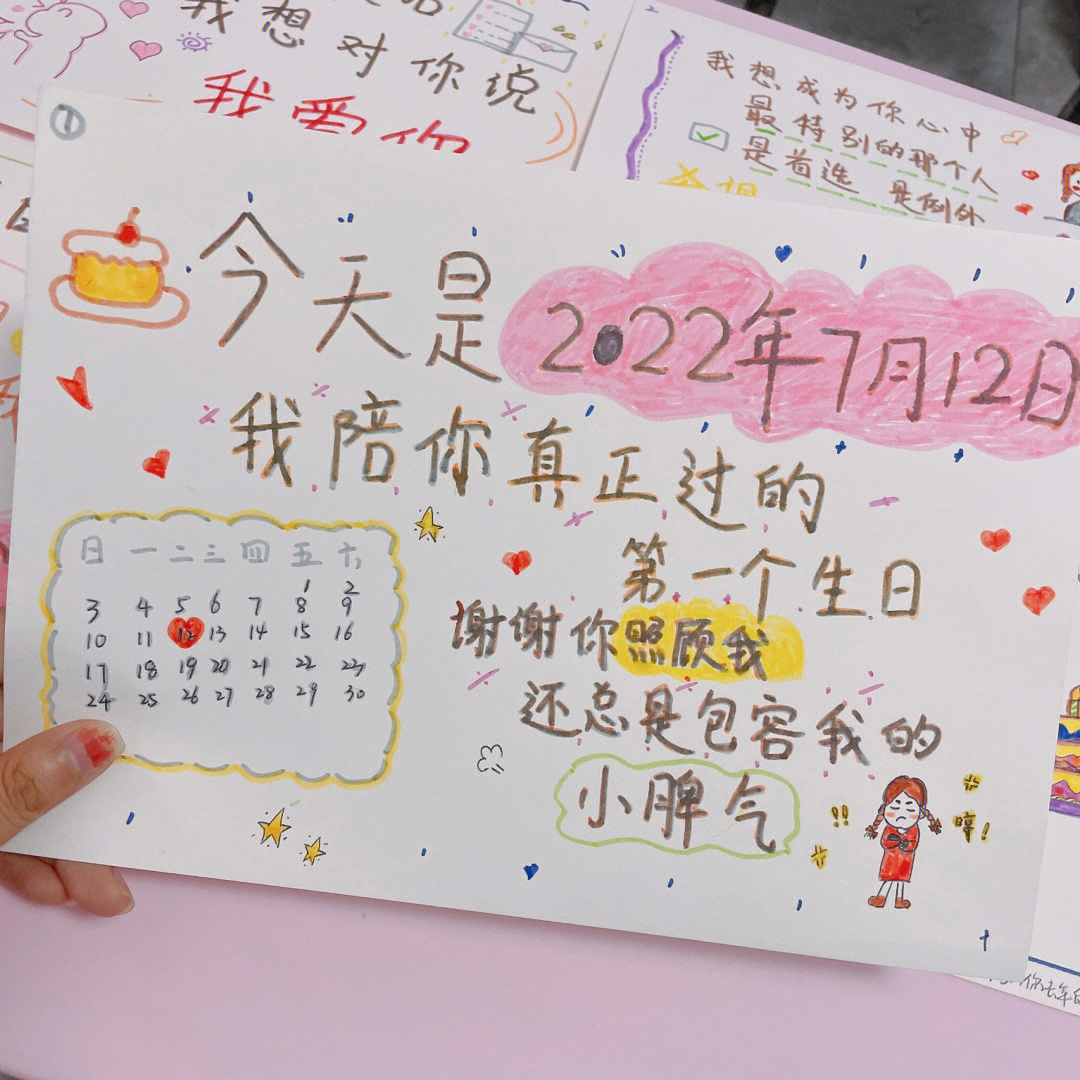 我想对你说
我爱你
2
我想成为你心中
最特别的那个人
是首选 是例外
①
今天是2022年7月12日
我陪你真正过的
第一个生日
谢谢你照顾我
还总是包容我的
小脾气
哼!
!!
日 一 二 三 四 五 六
1 2
3 4 5 6 7 8 9
10 11 12 13 14 15 16
17 18 19 20 21 22 23
24 25 26 27 28 29 30
你去年的